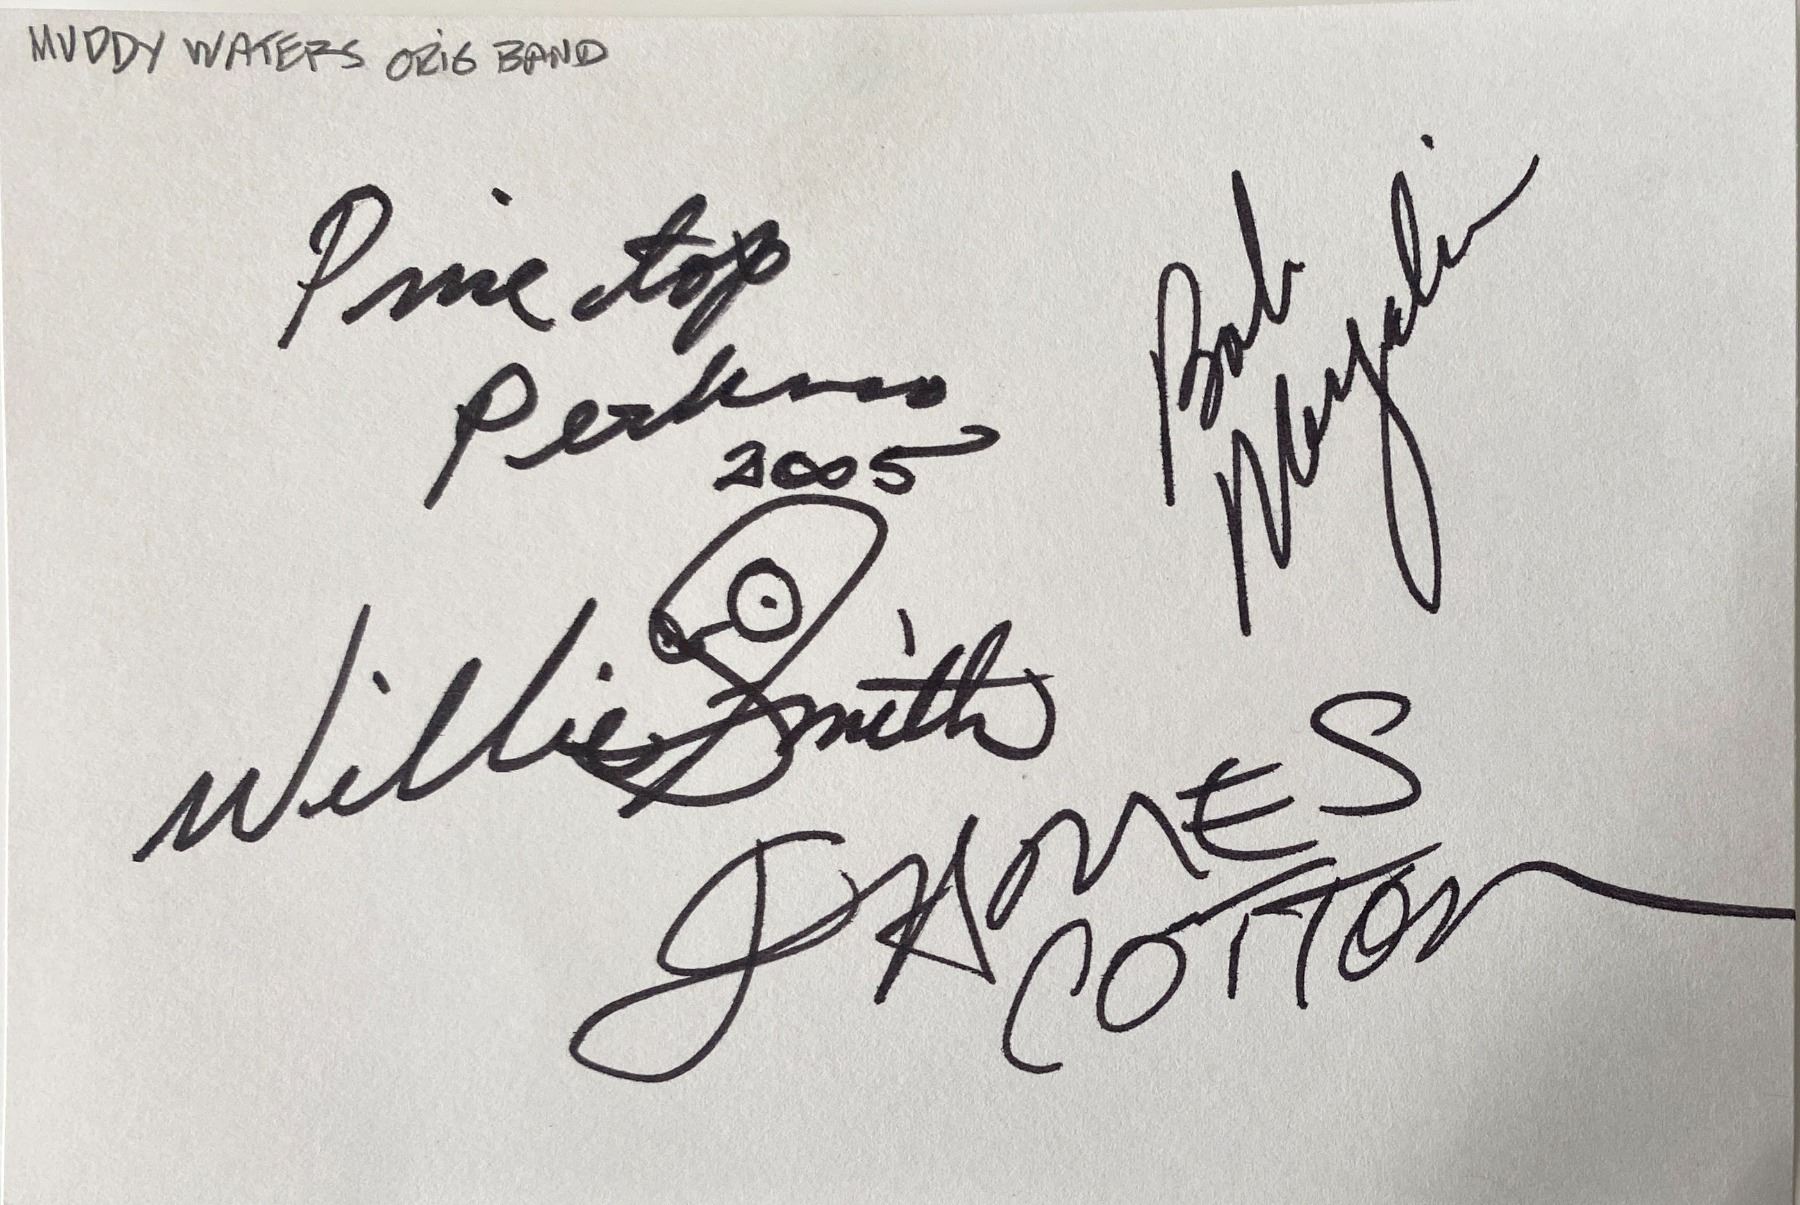 MUDDY WATERS ORIG BAND
Pinetop
Perkins
2005
Bob
Margolin
Willie Smith
JAMES
COTTON